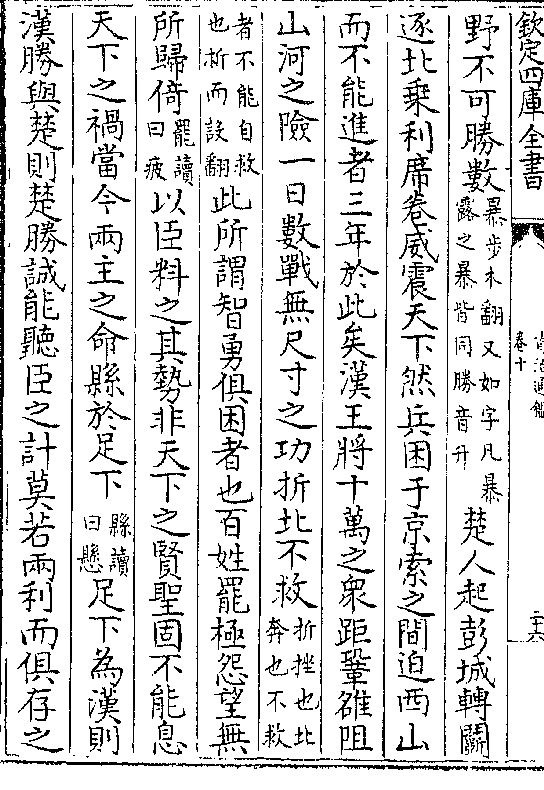 欽定四庫全書
資治通鑑
卷十
二十六
野不可勝數暴步木翻又如字凡暴露之暴皆同勝音升楚人起彭城轉鬭
逐北乗利席卷威震天下然兵困于京索之間迫西山
而不能進者三年於此矣漢王將十萬之衆距鞏雒阻
山河之險一日數戰無尺寸之功折北不救折挫也北奔也不救
者不能自救也折而設翻此所謂智勇俱困者也百姓罷極怨望無
所歸倚罷讀曰疲以臣料之其勢非天下之賢聖固不能息
天下之禍當今兩主之命縣於足下縣讀曰懸足下為漢則
漢勝與楚則楚勝誠能聽臣之計莫若兩利而俱存之